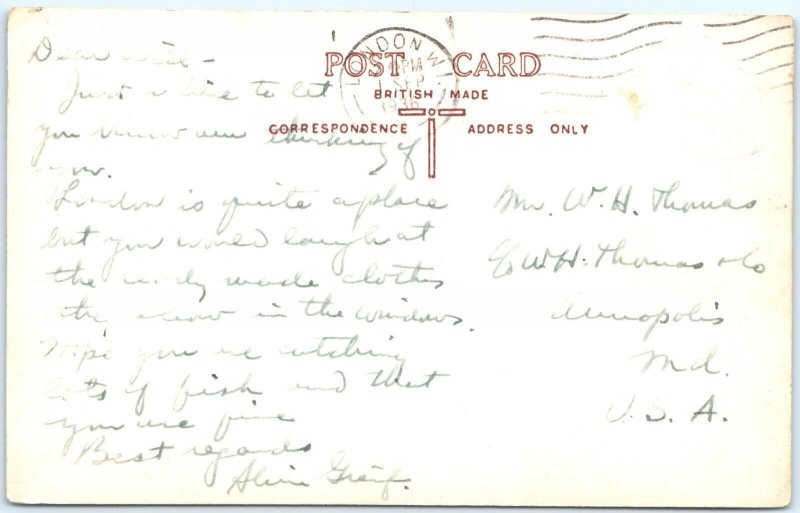 LONDON W.1
4 PM
1 SEP
1936
POST CARD
BRITISH MADE
CORRESPONDENCE ADDRESS ONLY
Dear
Just a line to let
you know am thinking of
you.
London is quite a place
but you would laugh at
the ready made clothes
they show in the windows.
Hope you are catching
lots of fish and that
you are fine
Best regards
Greif.
Mr. W. H. Thomas
c/o W. H. Thomas & Co
Annapolis
Md.
U. S. A.